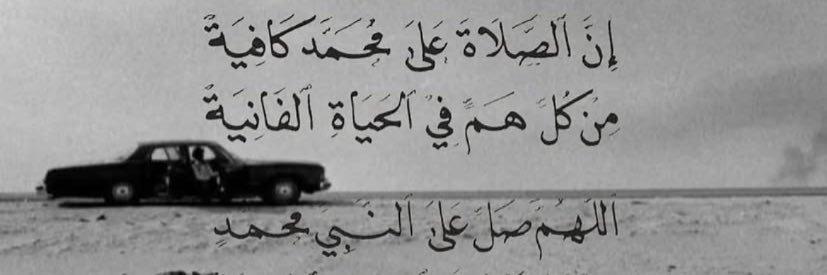 إِنَّ الصَّلَاةَ عَلَى مُحَمَّد كَافِيَةٌ
مِنْ كُلِّ هَمٍّ فِي الحَيَاةِ الفَانِيَةْ
اللهُم صَلِّ عَلَى النَّبِيِّ محمدٍ